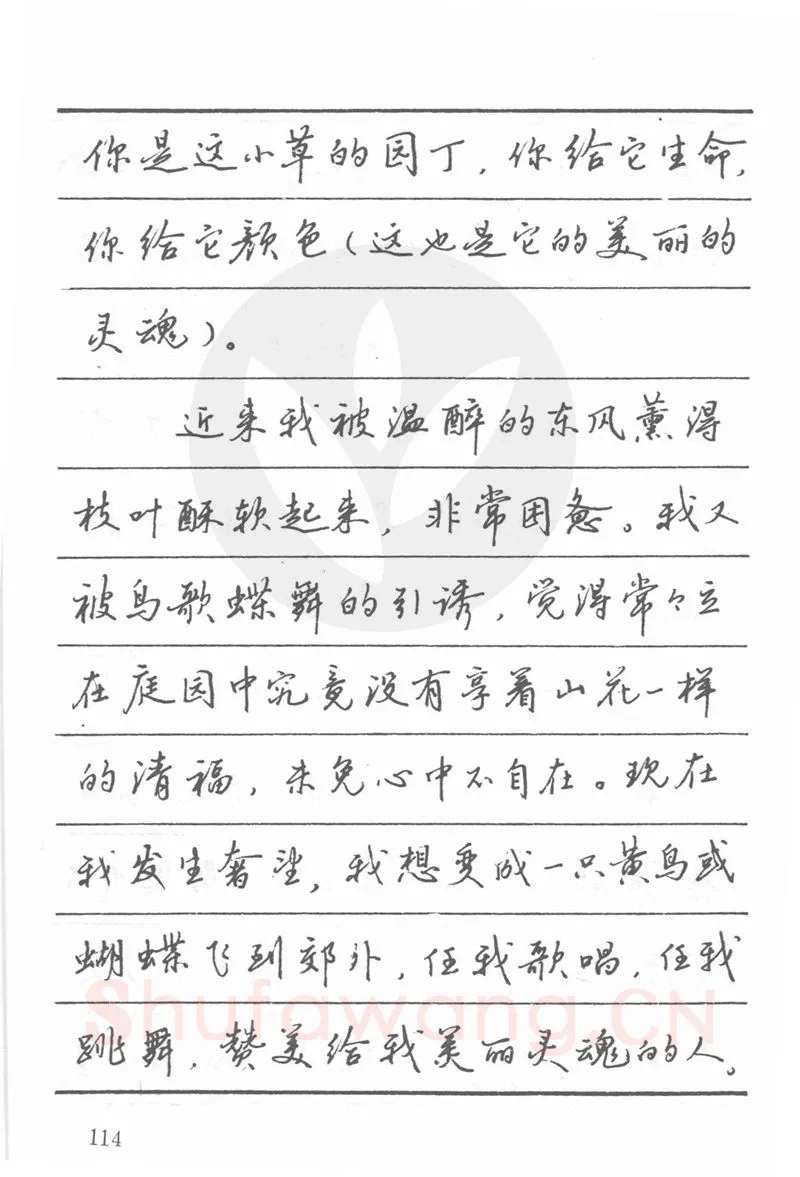 你是这小草的园丁，你给它生命，
你给它颜色（这也是它的美丽的
灵魂）。
近来我被温醉的东风薰得
枝叶酥软起来，非常困惫。我又
被鸟歌蝶舞的引诱，觉得常々立
在庭园中究竟没有享着山花一样
的清福，未免心中不自在。现在
我发生奢望，我想变成一只黄鸟或
蝴蝶飞到郊外，任我歌唱，任我
跳舞，赞美给我美丽灵魂的人。
Shufawang.CN
114